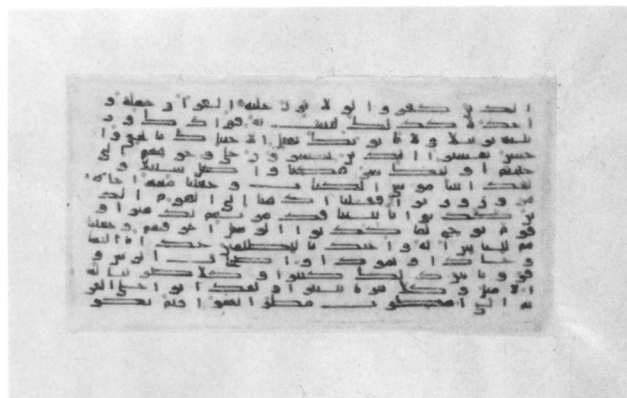 الذين كفروا لولا نزل عليه القرآن جملة و
احدة كذلك لنثبت به فؤادك ور
تلنه ترتيلا ولا ياتونك بمثل الا جئنك بالحق وا
حسن تفسيرا الذين يحشرون على وجوههم الى
جهنم اولئك شر مكانا واضل سبيلا و
لقد اتينا موسى الكتب وجعلنا معه اخاه
هرون وزيرا فقلنا اذهبا الى القوم الذ
ين كذبوا بايتنا فدمرنهم تدميرا و
قوم نوح لما كذبوا الرسل اغرقنهم وجعلنا
هم للناس اية واعتدنا للظلمين عذابا اليما
وعادا وثمودا واصحب الرس و
قرونا بين ذلك كثيرا وكلا ضربنا له
الامثل وكلا تبرنا تتبيرا ولقد اتوا على القر
ية التي امطرت مطر السوء افلم يكو